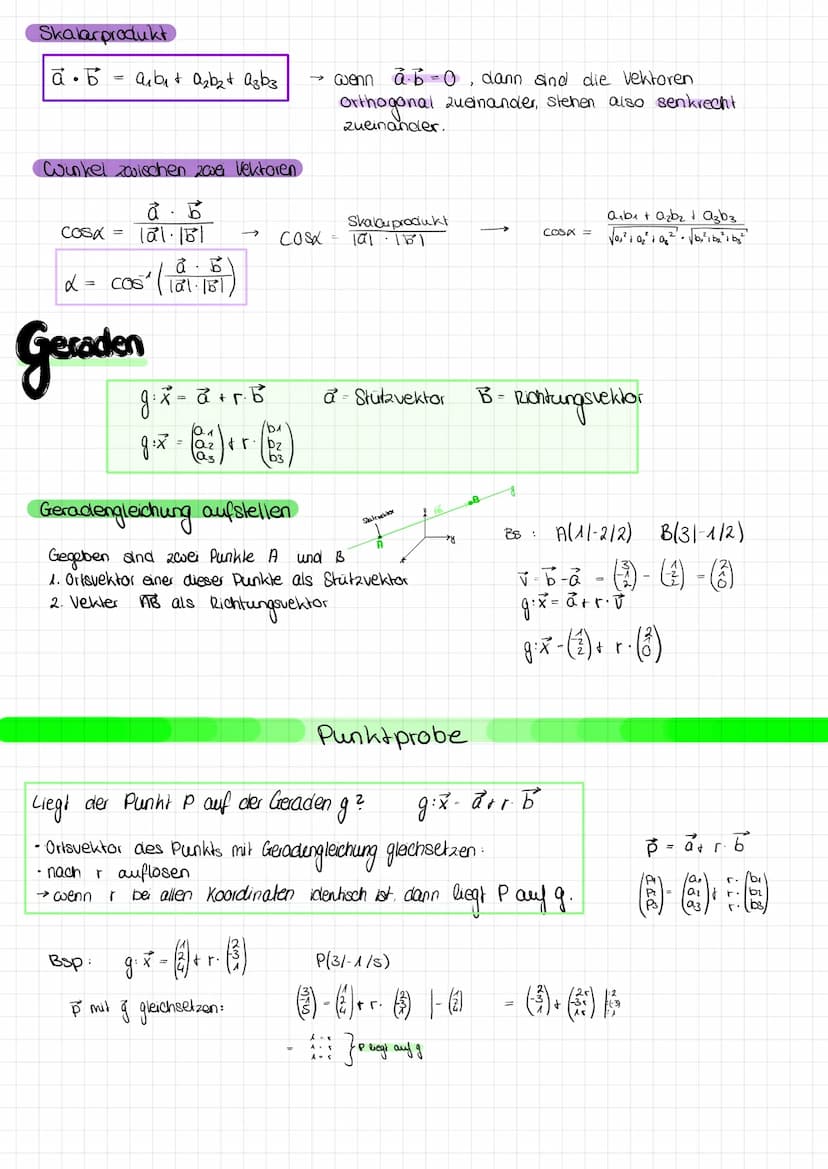 Skalarprodukt
a⃗ · b⃗ = a₁b₁ + a₂b₂ + a₃b₃ → wenn a⃗·b⃗ = 0, dann sind die Vektoren
orthogonal zueinander, stehen also senkrecht
zueinander.
Winkel zwischen zwei Vektoren
cosα = (a⃗ · b⃗)/(|a⃗|·|b⃗|) → cosα = Skalarprodukt/(|a⃗|·|b⃗|) → cosα = (a₁b₁ + a₂b₂ + a₃b₃)/(√(a₁²+a₂²+a₃²) · √(b₁²+b₂²+b₃²))
α = cos⁻¹((a⃗ · b⃗)/(|a⃗|·|b⃗|))
Geraden
g:x⃗ = a⃗ + r·b⃗ a⃗ = Stützvektor b⃗ = Richtungsvektor
g:x⃗ = (a₁ a₂ a₃) + r·(b₁ b₂ b₃)
Geradengleichung aufstellen
Stützvektor
A
B
g
y
Gegeben sind zwei Punkte A und B
1. Ortsvektor einer dieser Punkte als Stützvektor
2. Vektor AB⃗ als Richtungsvektor
Bs: A(1/-2/2) B(3/-1/2)
v⃗ = b⃗ - a⃗ = (3 -1 2) - (1 -2 2) = (2 1 0)
g:x⃗ = a⃗ + r·v⃗
g:x⃗ = (1 -2 2) + r·(2 1 0)
Punktprobe
Liegt der Punkt P auf der Geraden g? g:x⃗ = a⃗ + r·b⃗
· Ortsvektor des Punkts mit Geradengleichung gleichsetzen:
· nach r auflösen
→ wenn r bei allen Koordinaten identisch ist, dann liegt P auf g.
p⃗ = a⃗ + r·b⃗
(p₁ p₂ p₃) = (a₁ a₂ a₃) + r·(b₁ b₂ b₃)
Bsp: g:x⃗ = (1 2 4) + r·(2 -3 1) P(3/-1/5)
p⃗ mit g⃗ gleichsetzen: (3 -1 5) = (1 2 4) + r·(2 -3 1) | - (1 2 4) = (2 -3 1) + (2r -3r 1r) |:2 :-3 :1
= 1 = r 1 = r 1 = r } P liegt auf g